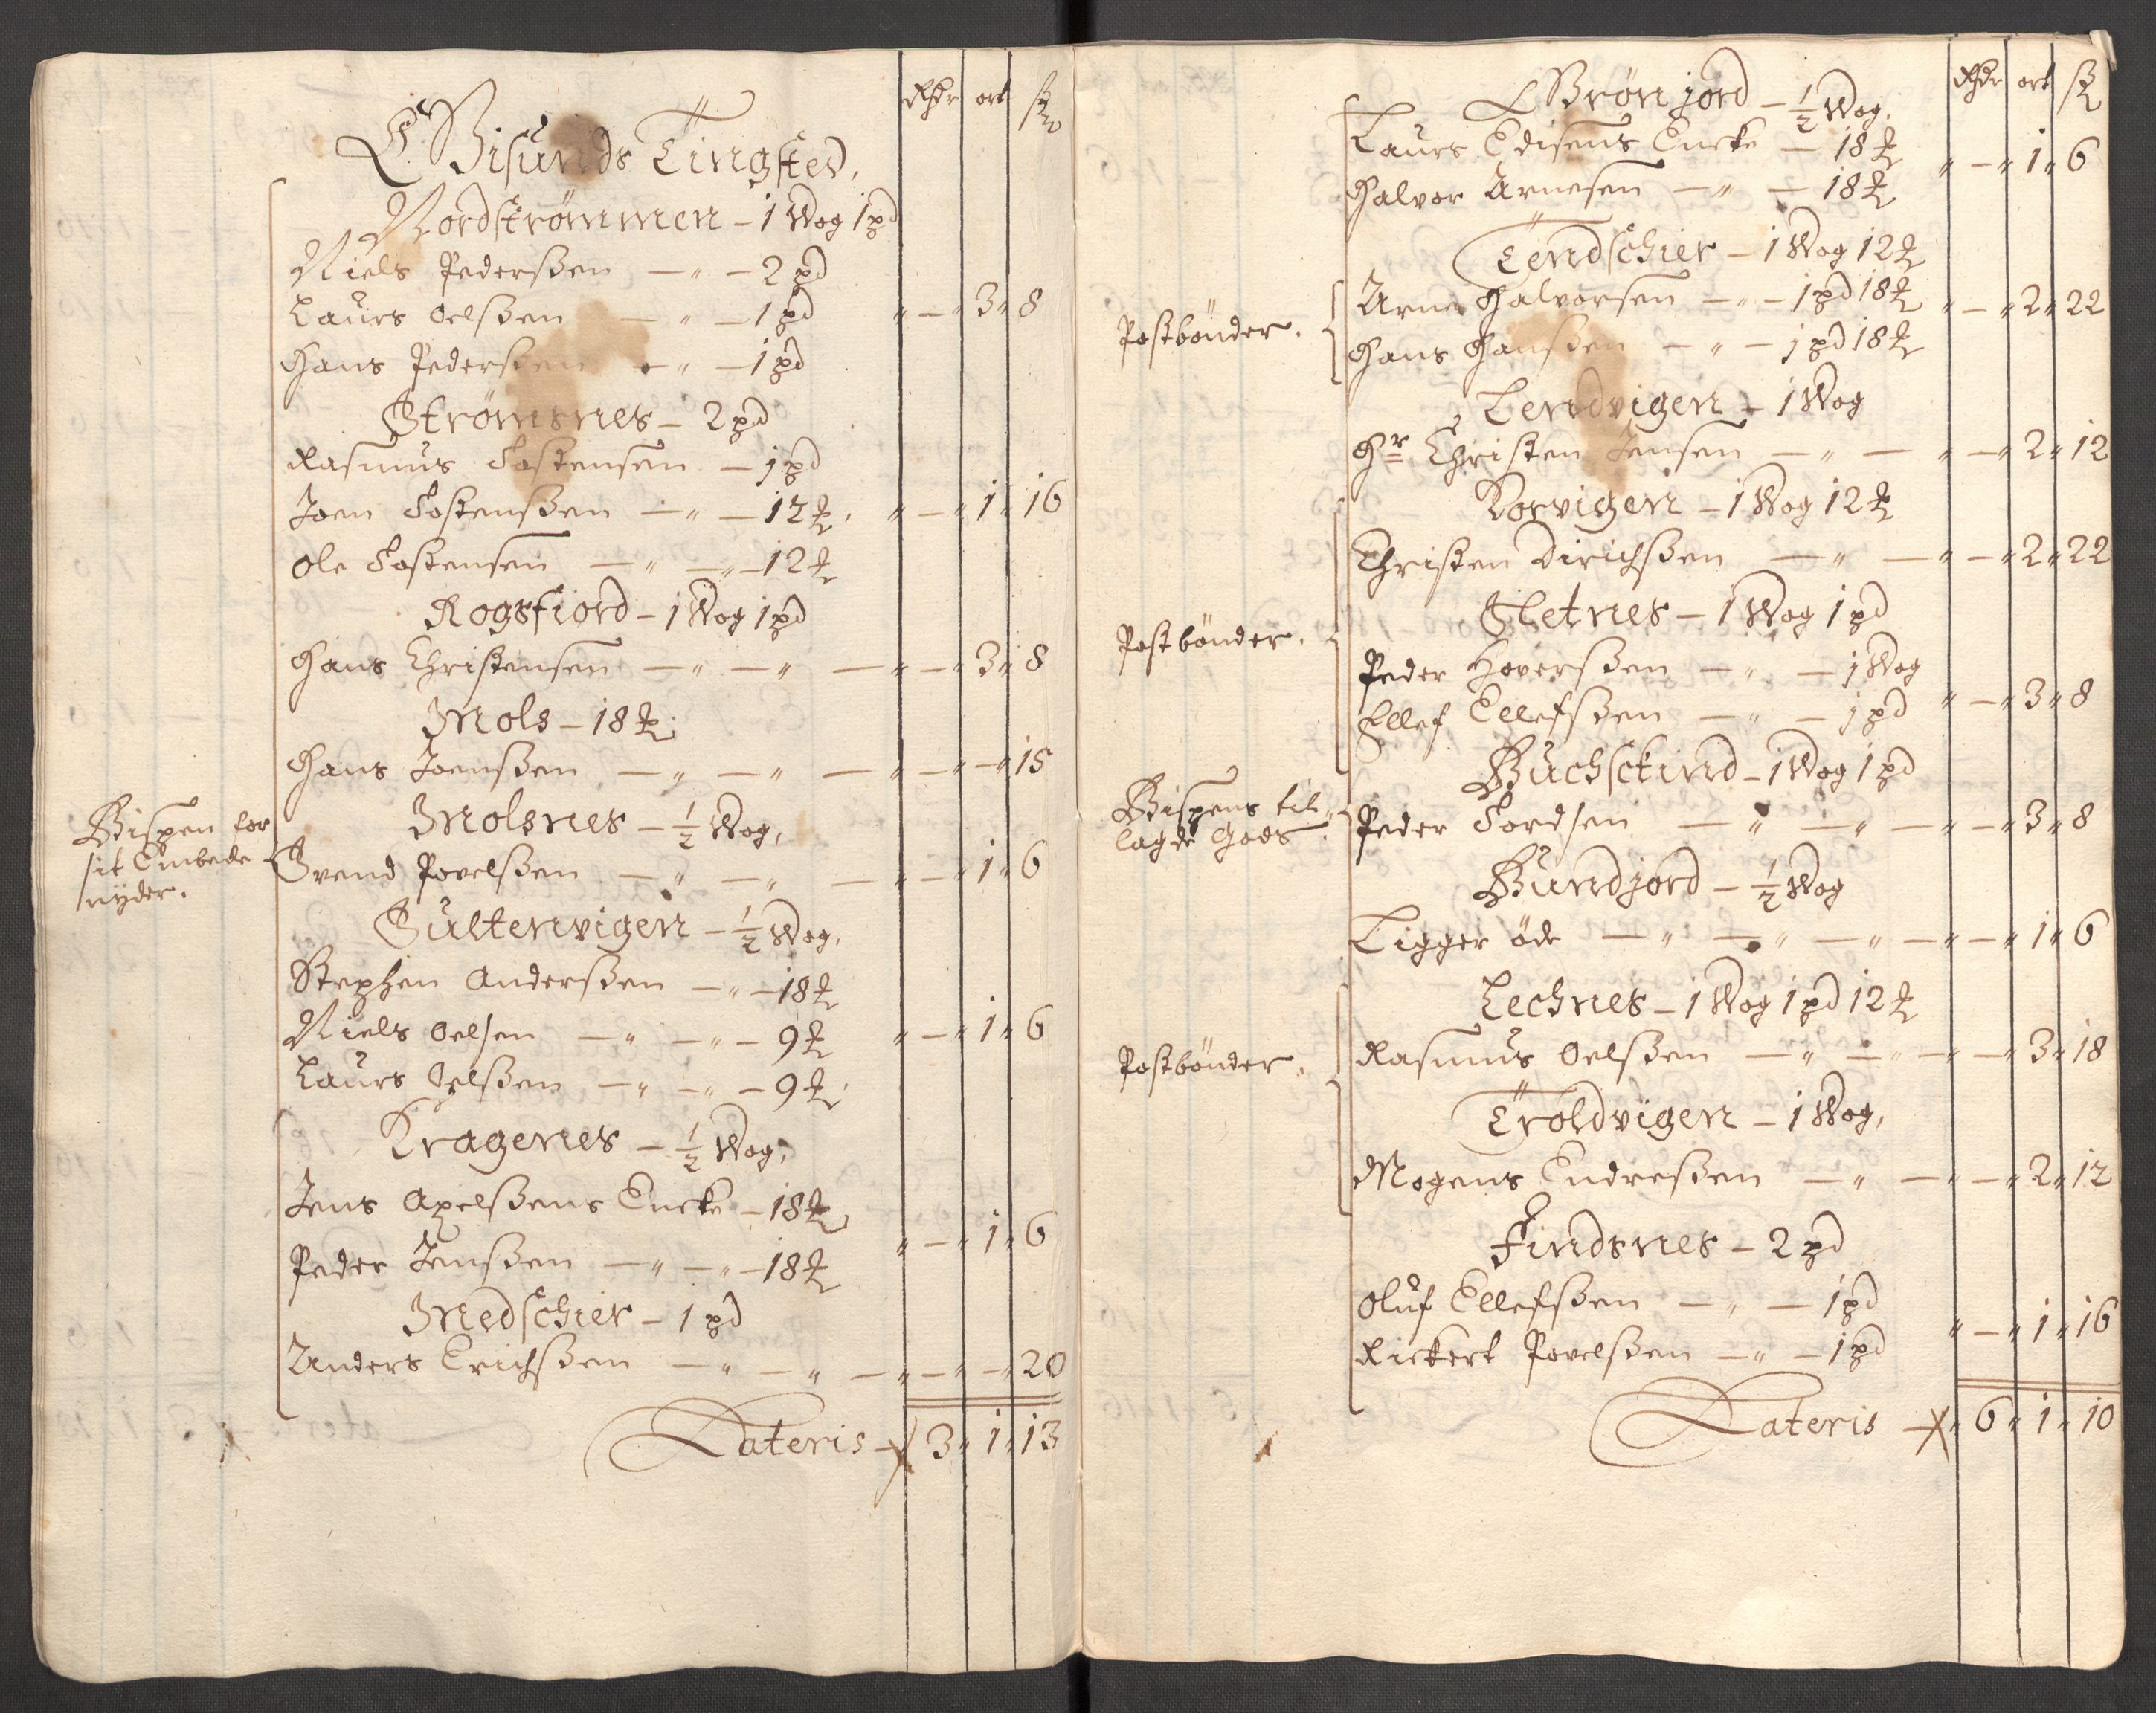 Rhdr ort ß
Gisunds Tingsted.
Nordstrømmen - 1 Wog 1 pd
Niels Pedersen - " - 2 pd
Laurs Oelsen - " - 1 pd " - " 3 " 8
Hans Pedersen - " - 1 pd
Strømsnes - 2 pd
Rasmus Tostensen - 1 pd
Joen Tostensen - " - 12 ℔. " - " 1 " 16
Ole Tostensen - " - " - 12 ℔
Rogsfiord - 1 Wog 1 pd
Hans Christensen - " - " - " - " 3 " 8
Mols - 18 ℔.
Hans Joensen - " - " - " - " - " 15
Molsnes - ½ Wog.
Bispen for
sit Embede
nyder.
Svend Povelsen - " - " - " - " 1 " 6
Gultenvigen - ½ Wog.
Stephen Andersen - " - 18 ℔
Niels Oelsen - " - " - 9 ℔ " - " 1 " 6
Laurs Oelsen - " - " - 9 ℔.
Kragenes - ½ Wog.
Jens Apelsens Encke - 18 ℔ " - " 1 " 6
Peder Jensen - " - " - 18 ℔
Medschier - 1 pd
Anders Erichsen - " - " - " - " - " 20
Lateris - 3 " 1 " 13
Rhdr ort ß
Grønjord - ½ Wog.
Laurs Edisens Encke - 18 ℔ " - " 1 " 6
Halvor Arnesen - " - 18 ℔
Tendschier - 1 Wog 12 ℔
Postbönder.
Arne Halvorsen - " - 1 pd 18 ℔ " - " 2 " 22
Hans Hansen - " - 1 pd 18 ℔
Lendvigen - 1 Wog
Hr Christen Jensen - " - " - " 2 " 12
Korvigen - 1 Wog 12 ℔
Christen Dirichsen - " - " - " 2 " 22
Sletnes - 1 Wog 1 pd
Postbönder.
Peder Hoversen - " - 1 Wog
Ellef Ellefsen - " - 1 pd " - " 3 " 8
Buchschind - 1 Wog 1 pd
Bispens til
lagde Gods.
Peder Tordsen - " - " - " - " 3 " 8
Bundjord - ½ Wog
Ligger øde - " - " - " - " - " 1 " 6
Lechnes - 1 Wog 1 pd 12 ℔
Postbönder.
Rasmus Oelsen - " - " - " - " 3 " 18
Troldvigen - 1 Wog.
Mogens Endresen - " - " - " 2 " 12
Findsnes - 2 pd
Oluf Ellefsen - " - 1 pd " - " 1 " 16
Rickert Povelsen - " - 1 pd
Lateris - " 6 " 1 " 10